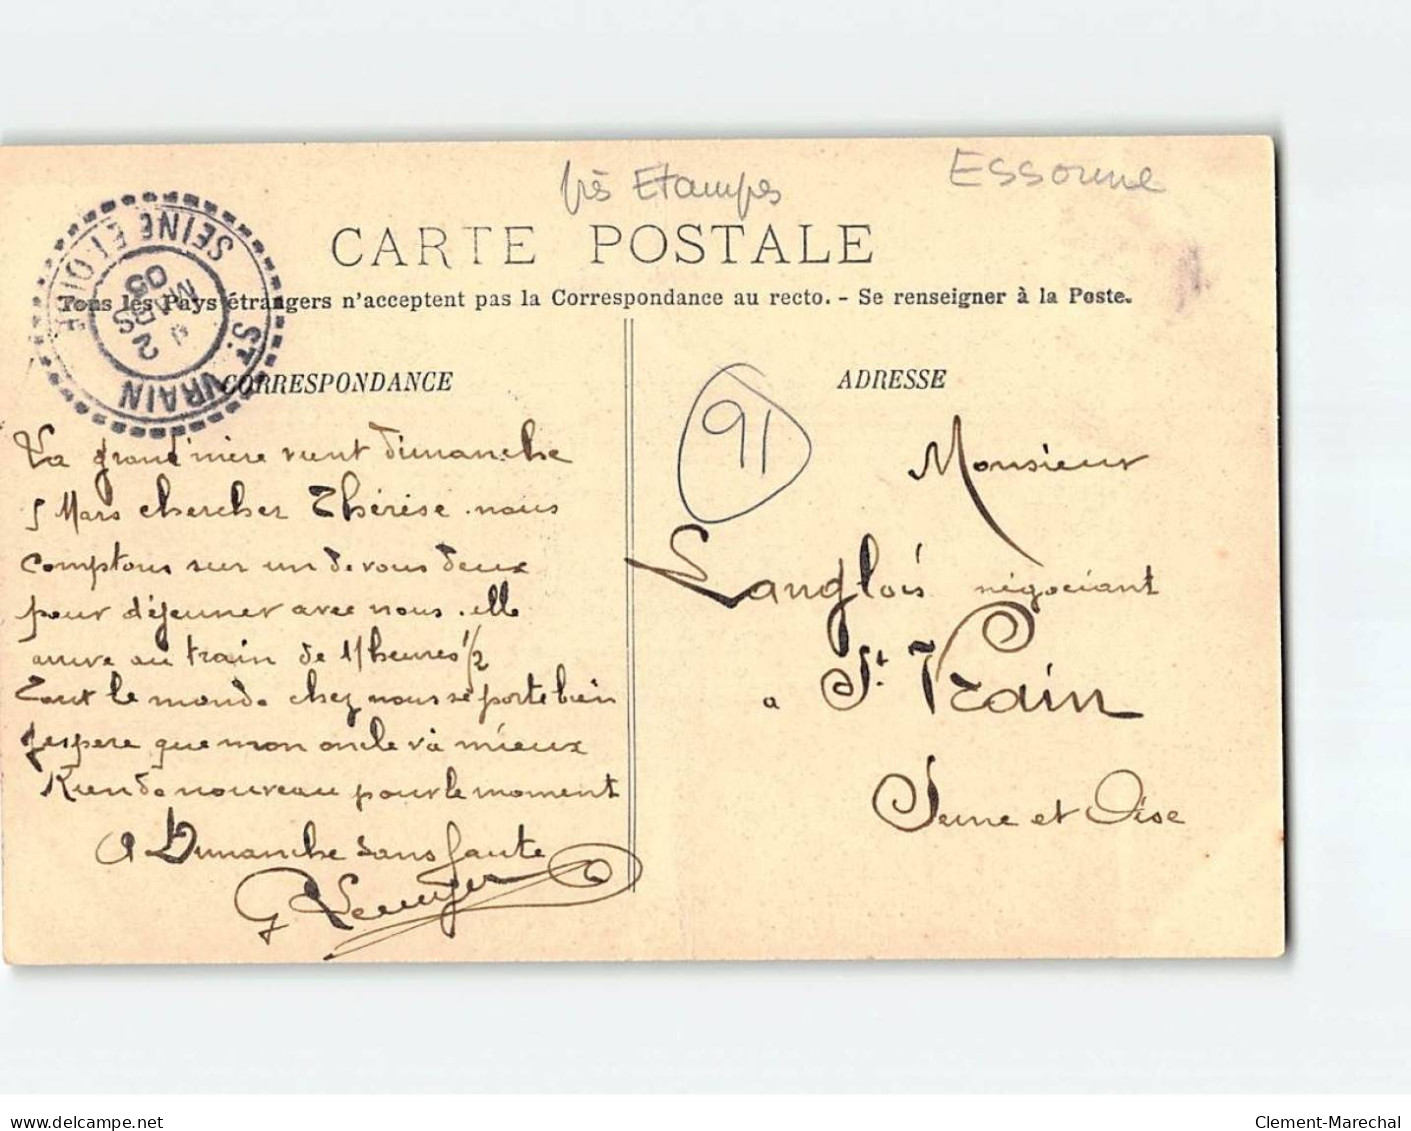 près Etampes
Essonne
CARTE POSTALE
Tous les Pays étrangers n'acceptent pas la Correspondance au recto. - Se renseigner à la Poste.
ST VRAIN
SEINE ET OISE
2
MARS
05
CORRESPONDANCE
ADRESSE
91
La grand'mère vient dimanche
5 Mars chercher Thérèse. nous
comptons sur un de vous deux
pour déjeuner avec nous. elle
arrive au train de 11 heures 1/2
Tout le monde chez nous se porte bien
J'espère que mon oncle va mieux
Rien de nouveau pour le moment
A Dimanche sans faute
Monsieur
Langlois négociant
a St. Vrain
Seine et Oise
www.delcampe.net
Clement-Marechal